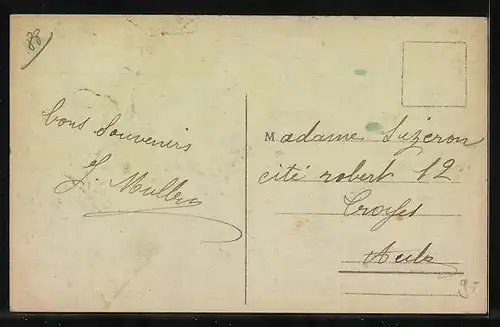 88
bons souvenirs
J. Muller
Madame Lizeron
cité robert 12
Troyes
Aube